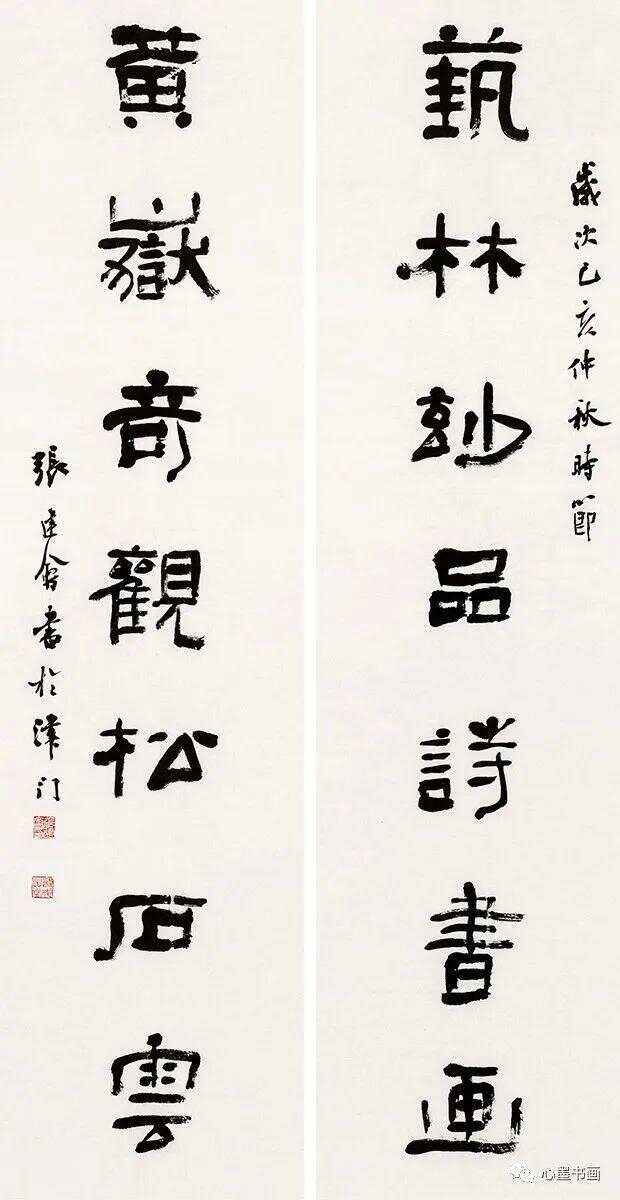 歲次己亥仲秋時節
蓺林玅品詩書画
黃嶽奇觀松石雲
張建會書於津门
心墨书画